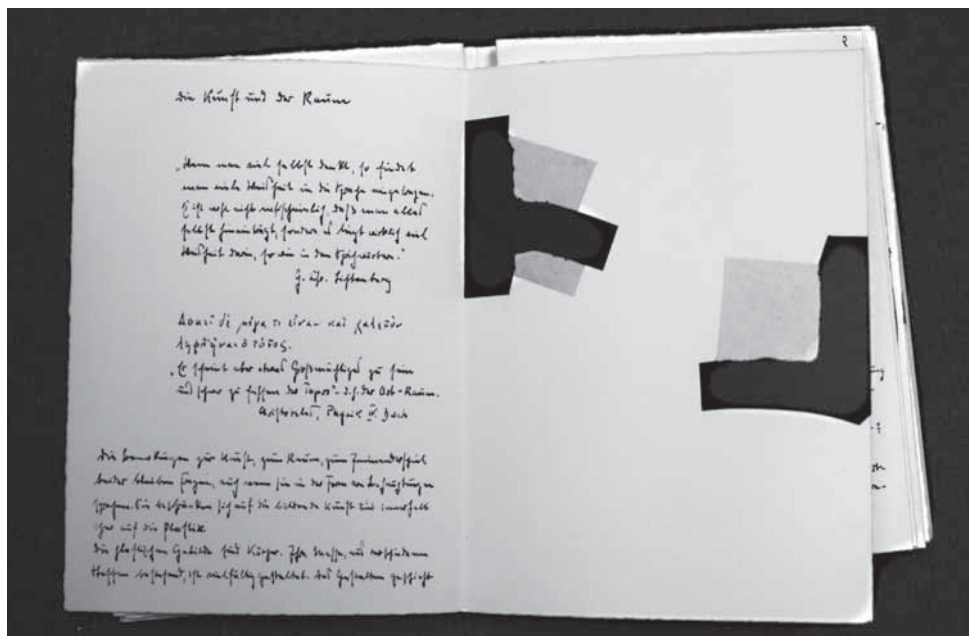 Die Kunst und der Raum
„Wenn man viel selbst denkt, so findet
man viele Weisheit in die Sprache eingetragen.
Es ist wohl nicht wahrscheinlich, daß man alles
selbst hineinträgt, sondern es liegt wirklich viel
Weisheit darin, so wie in den Sprichwörtern."
G. Chr. Lichtenberg
Δοκεῖ δὲ μέγα τι εἶναι καὶ χαλεπὸν
ληφθῆναι ὁ τόπος.
„Es scheint aber etwas Großmächtiges zu sein
und schwer zu fassen der Topos" – d.h. der Ort-Raum.
Aristoteles, Physik IV. Buch
Die Bemerkungen zur Kunst, zum Raum, zum Ineinanderspiel
beider bleiben Fragen, auch wenn sie in der Form von Behauptungen
sprechen. Sie beschränken sich auf die bildende Kunst und innerhalb
ihrer auf die Plastik
Die plastischen Gebilde sind Körper. Ihre Masse, aus verschiedenen
Stoffen bestehend, ist vielfältig gestaltet. Das Gestalten geschieht